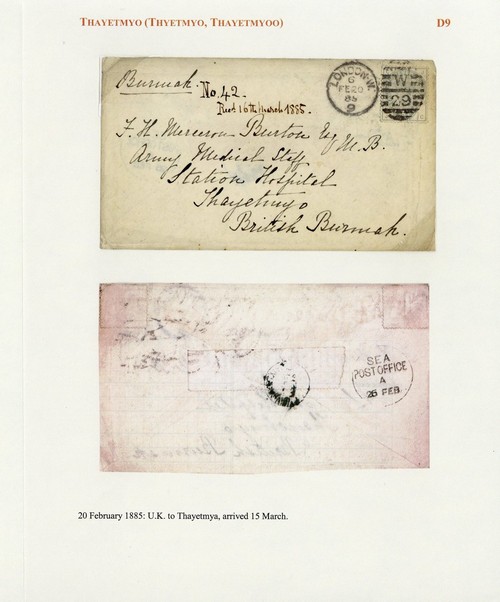 THAYETMYO (THYETMYO, THAYETMYOO)
D9
Burmah.
No. 42.
Recd 16th March 1885.
LONDON·W.
6
FE 20
85
9
W
29
F. H. Burton Esq M.B.
Army Medical Staff
Station Hospital
Thayetmyo
British Burmah.
SEA
POST OFFICE
A
26 FEB
20 February 1885: U.K. to Thayetmya, arrived 15 March.